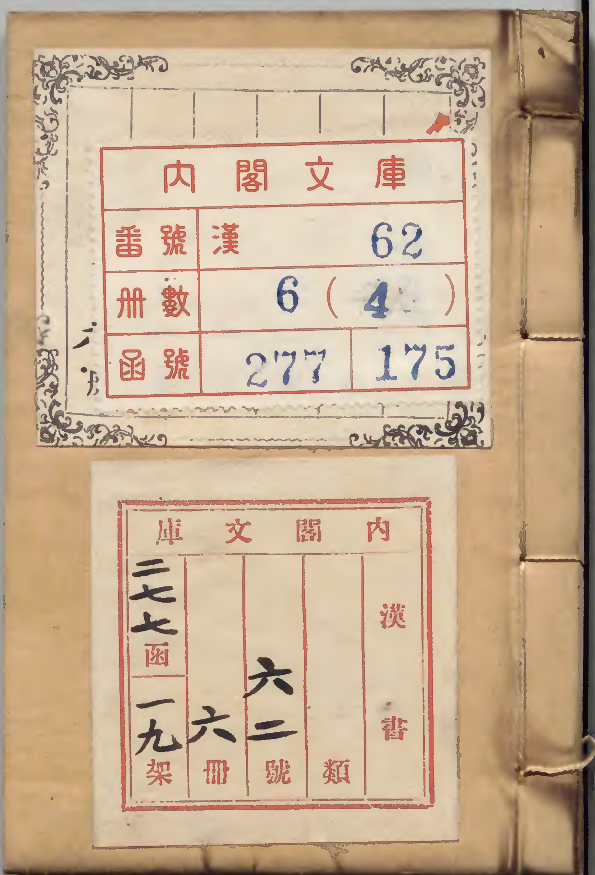 内閣文庫
番號 漢 62
冊數 6 (4)
函號 277 175
庫文閣内
漢書
類
六二號
六冊
二七七函
一九架